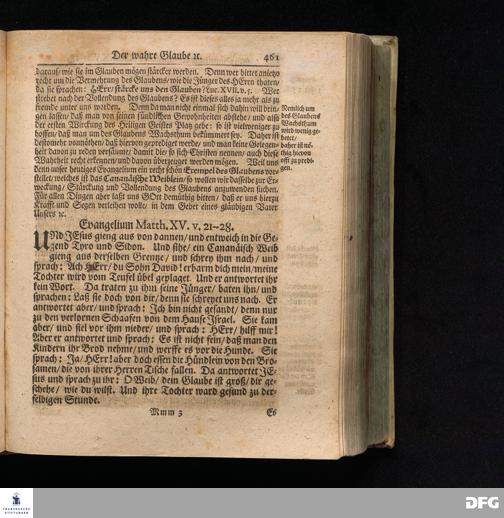 Der wahre Glaube ꝛc. 461
daraus/ wie sie im Glauben mögen stärcker werden. Denn wer bittet anietzo
recht um die Vermehrung des Glaubens/ wie die Jünger des HErrn thaten/
da sie sprachen: HErr/ stärcke uns den Glauben? Luc. XVII. v. 5. Wer
strebet nach der Vollendung des Glaubens? Es ist dieses alles ja mehr als zu
fremde unter uns worden. Denn da man nicht einmal sich dahin will brin-
gen lassen/ daß man von seinen sündlichen Gewohnheiten abstehe/ und also
der ersten Würckung des Heiligen Geistes Platz gebe: so ist vielweniger zu
hoffen/ daß man um des Glaubens Wachsthum bekümmert sey. Daher ist
destomehr vonnöthen/ daß hiervon geprediget werde/ und man keine Gelegen-
heit davon zu reden versäume/ damit die/ so sich Christen nennen/ auch diese
Wahrheit recht erkennen/ und davon überzeuget werden mögen. Weil uns
denn unser heutiges Evangelium ein recht schön Exempel des Glaubens vor-
stellet/ welches ist das Cananäische Weiblein/ so wollen wir dasselbe zur Er-
weckung/ Stärckung und Vollendung des Glaubens anzuwenden suchen.
Für allen Dingen aber laßt uns GOtt demüthig bitten/ daß er uns hierzu
Krafft und Segen verleihen wolle/ in dem Gebet eines gläubigen Vater
Unsers ꝛc.
Nemlich um
des Glaubens
Wachsthum
wird wenig ge-
betet/
daher ist nö-
thig hiervon
offt zu predi-
gen.
Evangelium Matth. XV. v. 21-28.
UNd JEsus gieng aus von dannen/ und entweich in die Ge-
gend Tyro und Sidon. Und sihe/ ein Cananäisch Weib
gieng aus derselben Grentze/ und schrey ihm nach/ und
sprach: Ach HErr/ du Sohn David! erbarm dich mein/ meine
Tochter wird vom Teufel übel geplaget. Und er antwortet ihr
kein Wort. Da traten zu ihm seine Jünger/ baten ihn/ und
sprachen: Laß sie doch von dir/ denn sie schreyet uns nach. Er
antwortet aber/ und sprach: Ich bin nicht gesandt/ denn nur
zu den verlornen Schaafen von dem Hause Israel. Sie kam
aber/ und fiel vor ihm nieder/ und sprach: HErr/ hilff mir!
Aber er antwortet und sprach: Es ist nicht fein/ daß man den
Kindern ihr Brod nehme/ und werffe es vor die Hunde. Sie
sprach: Ja/ HErr! aber doch essen die Hündlein von den Bro-
samen/ die von ihrer Herren Tische fallen. Da antwortet JE-
sus und sprach zu ihr: O Weib/ dein Glaube ist groß/ dir ge-
schehe/ wie du wilst. Und ihre Tochter ward gesund zu der-
selbigen Stunde.
Mmm 3 Es
FRANCKESCHE
STIFTUNGEN
DFG